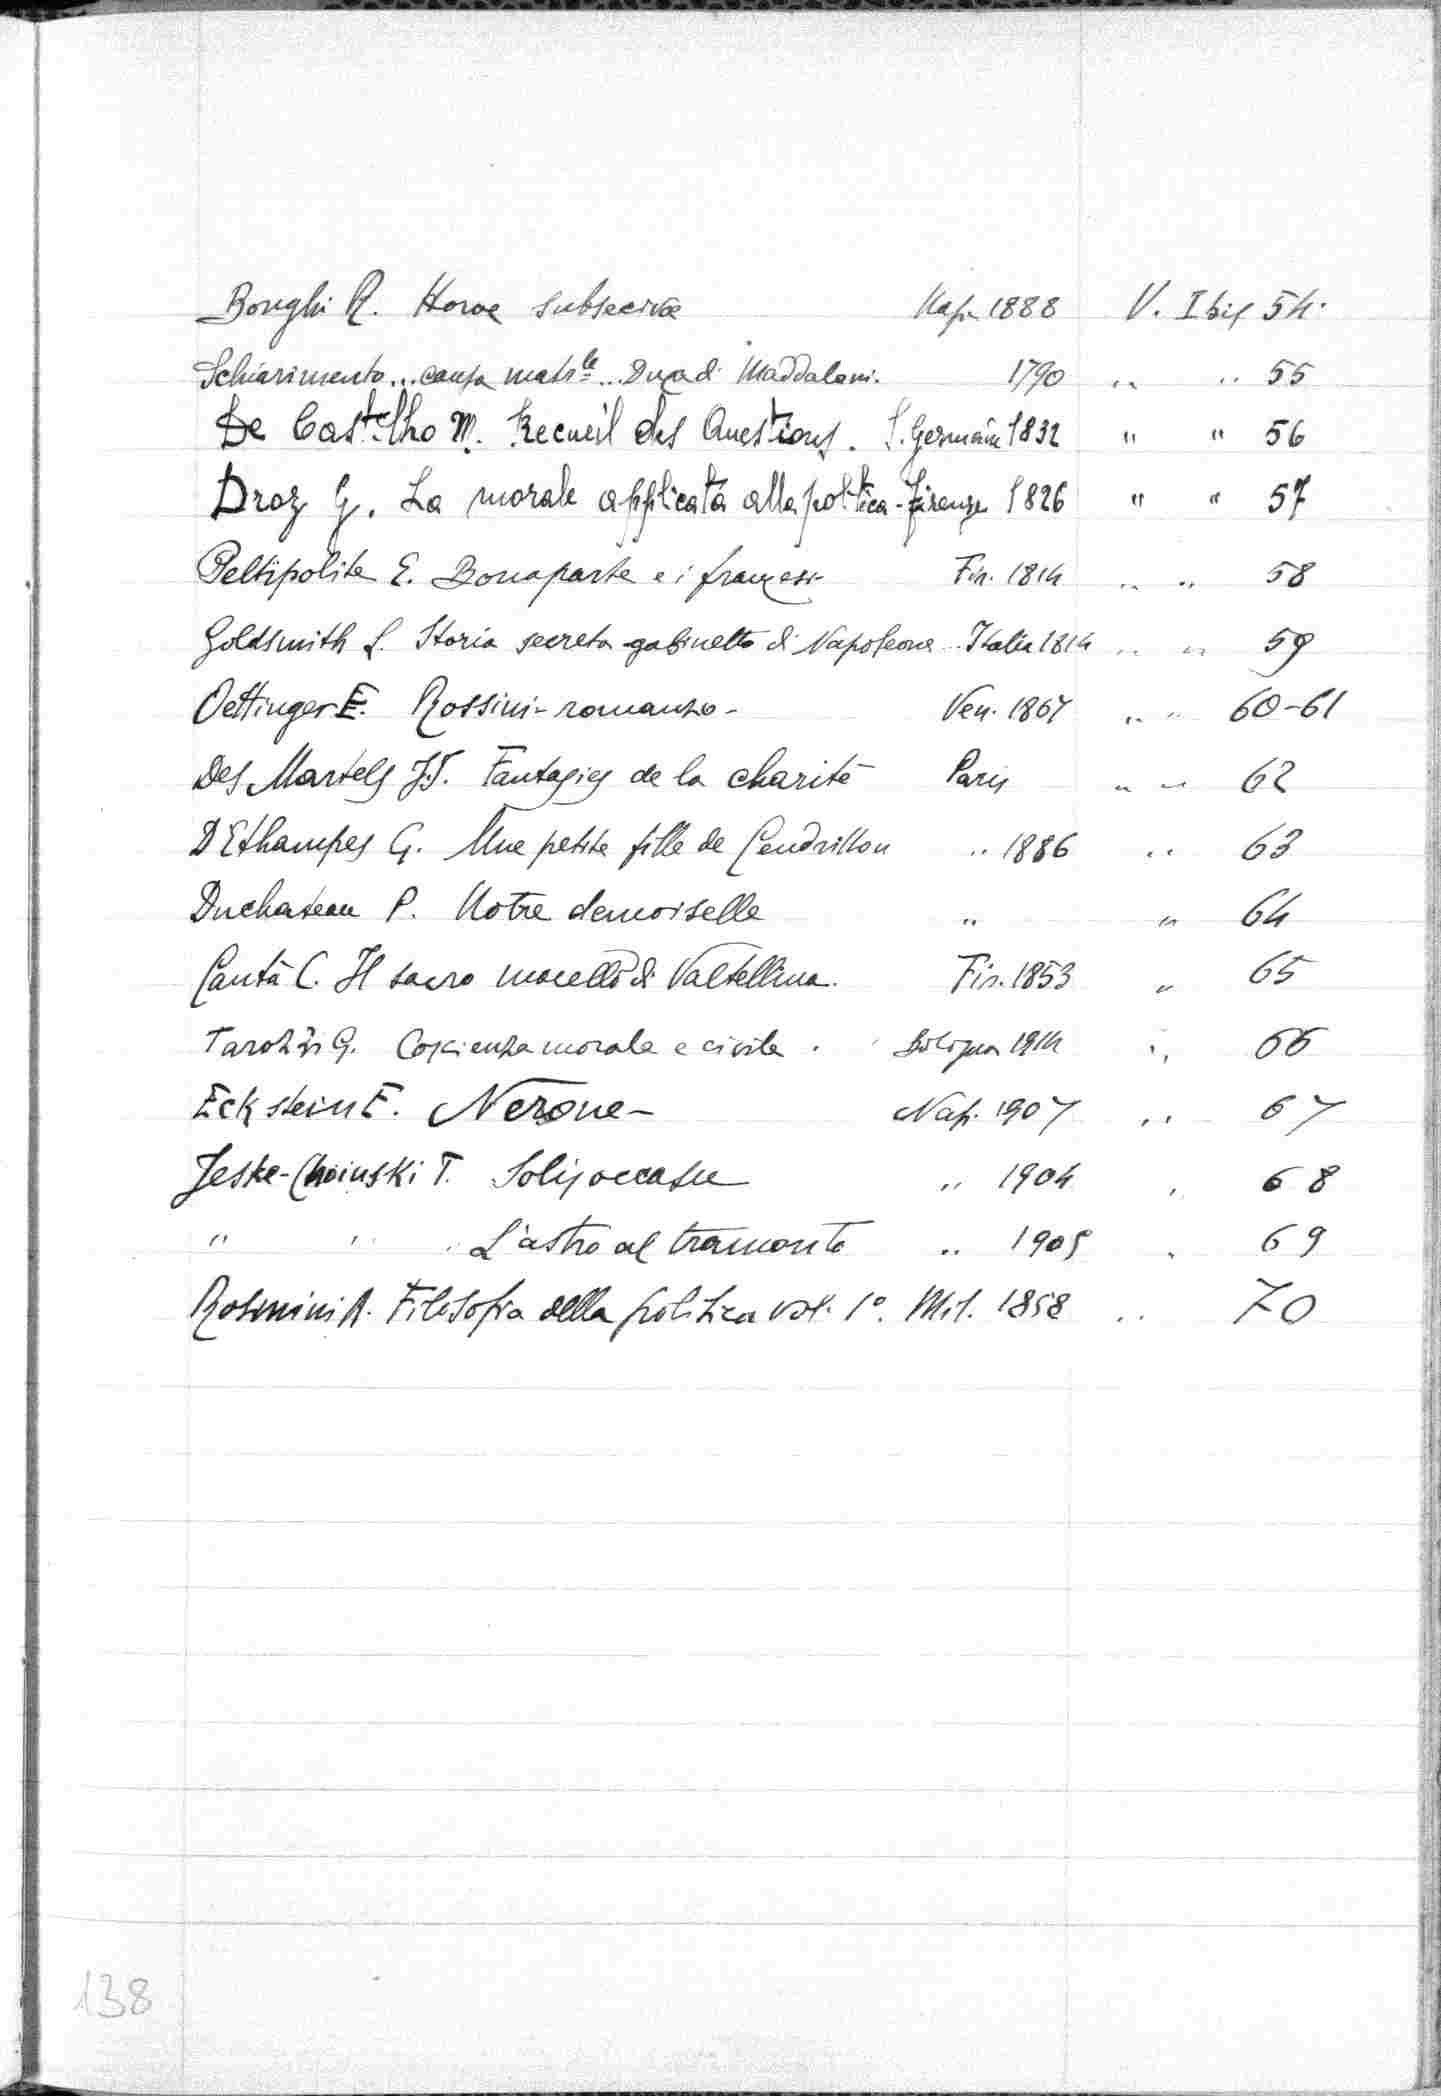 Bonghi R. Horae subsecivae Nap. 1888 V. I bis 54.
Schiarimento... causa matr.le... Duca di Maddaloni. 1790 " " 55
De Castilho M. Recueil des Questions. S. Germain 1832 " " 56
Droz G. La morale applicata alla politica - Firenze 1826 " " 57
Peltipolite E. Bonaparte e i francesi Fir. 1814 " " 58
Goldsmith L. Storia secreta gabinetto di Napoleone Italia 1814 " " 59
Oettinger E. Rossini - romanzo - Ven. 1867 " " 60-61
Des Martels J.T. Fantasies de la charité Paris " " 62
D'Ethampes G. Une petite fille de Cendrillon " 1886 " 63
Duchateau P. Notre demoiselle " " 64
Cantù C. Il sacro macello di Valtellina. Fir. 1853 " 65
Tarozzi G. Coscienza morale e civile. Bologna 1914 " 66
Eckstein E. Nerone - Nap. 1907 " 67
Jeske-Choinski T. Solis occasu " 1904 " 68
" " " L'astro al tramonto " 1905 " 69
Rosmini A. Filosofia della politica vol. 1º. Mil. 1858 " 70
138